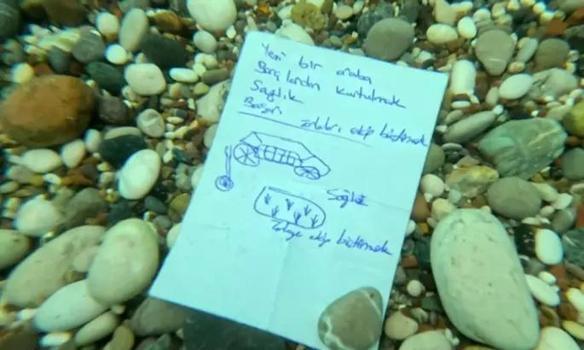 Yeni bir araba
Borçlardan kurtulmak
Sağlık
Başarı
ekip biçtirmek
Sağlık
ekip biçtirmek